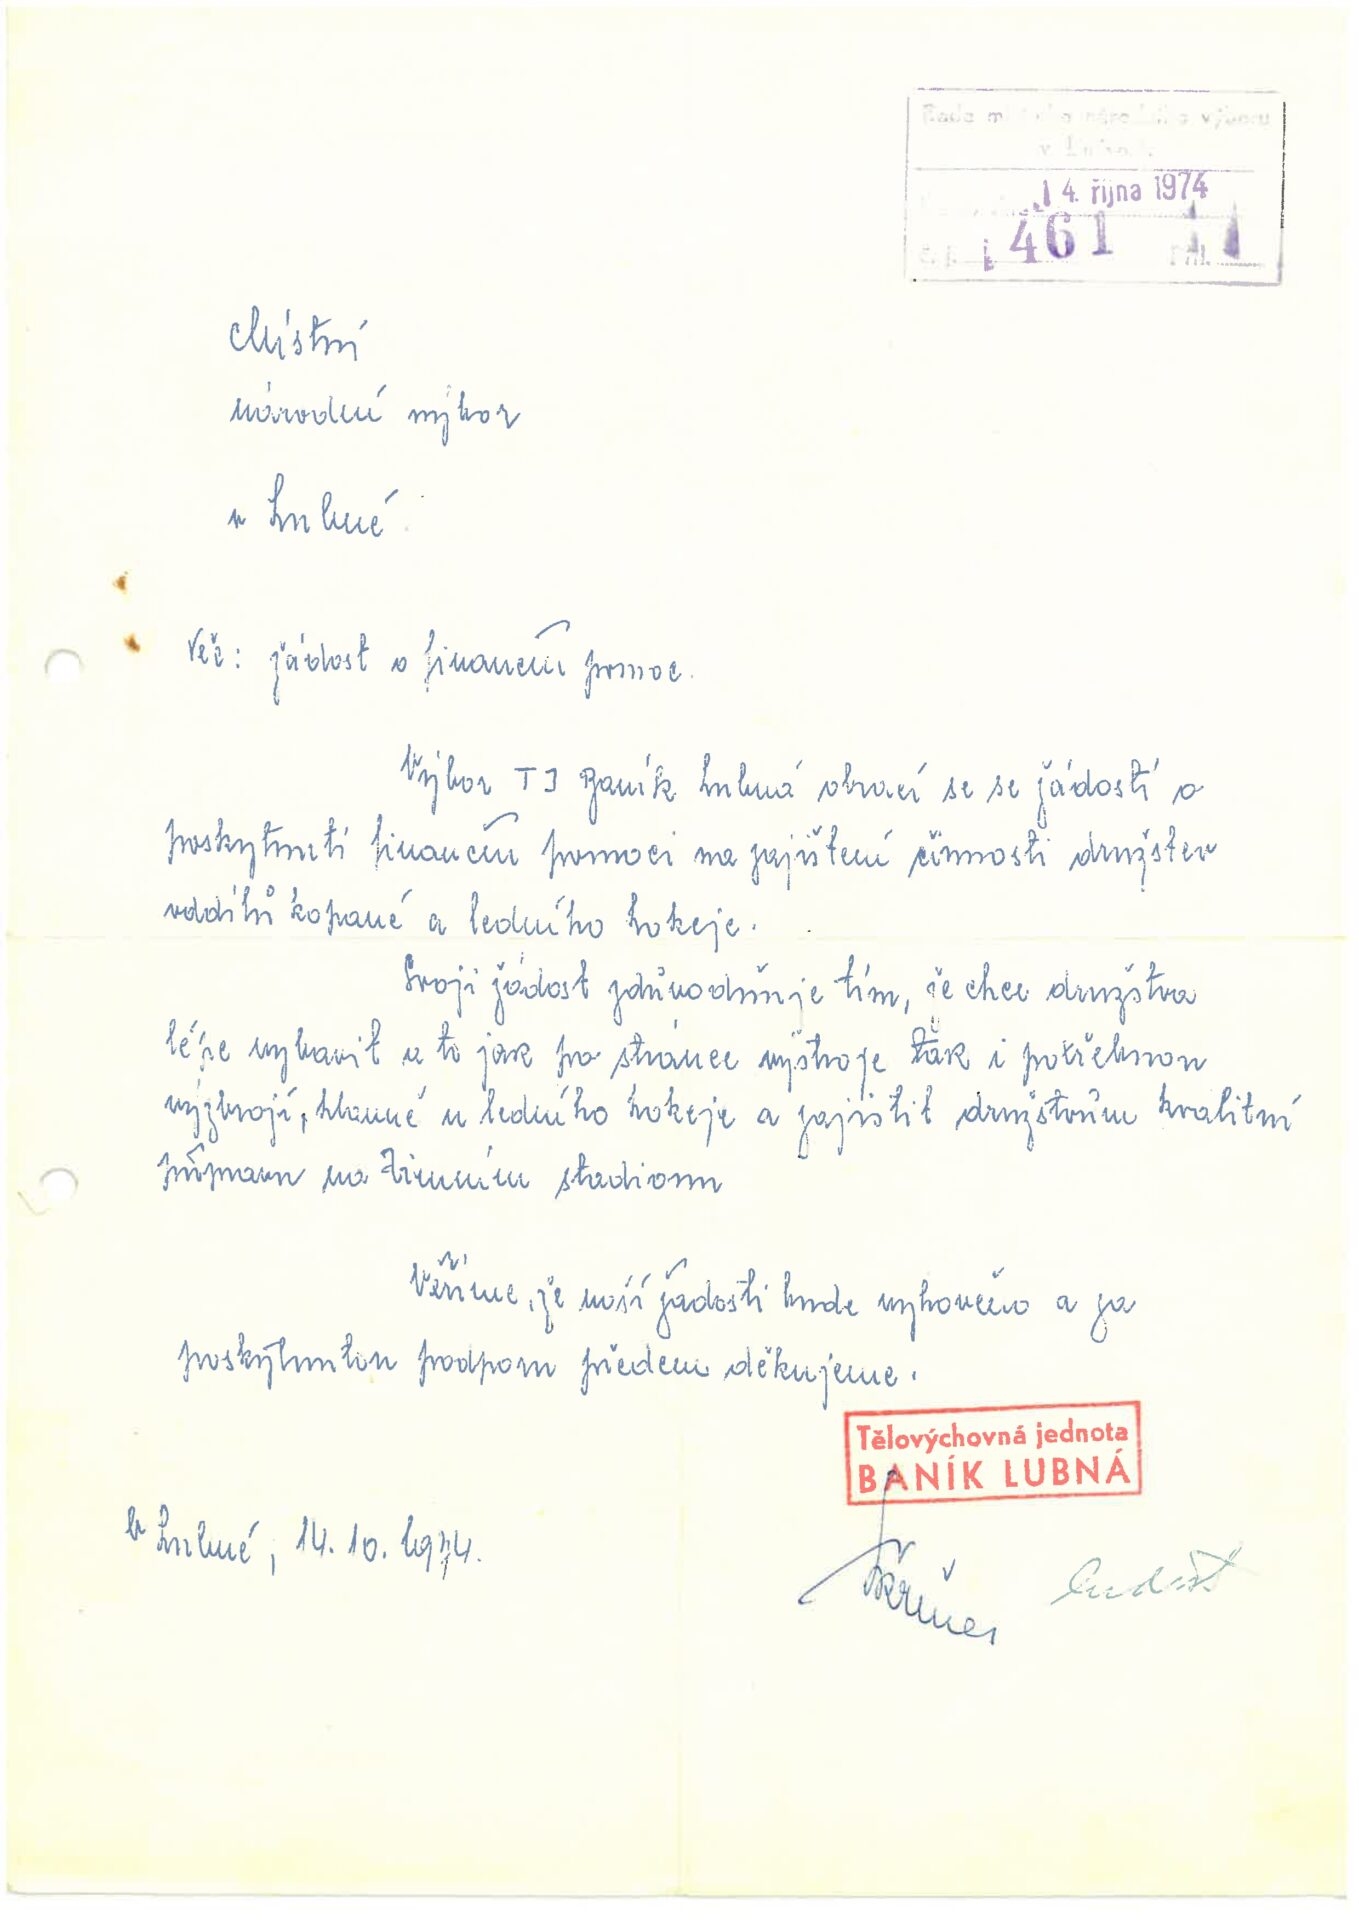 Rada místního národního výboru
v Lubné
14. října 1974
č.j. 461 Příl.
Místní
národní výbor
v Lubné.
Věc: žádost o finanční pomoc.
Výbor TJ Baník Lubná obrací se se žádostí o
poskytnutí finanční pomoci na zajištění činnosti družstev
oddílů kopané a ledního hokeje.
Svoji žádost zdůvodňuje tím, že chce družstva
lépe vybavit a to jak po stránce výstroje tak i potřebnou
výzbrojí, hlavně u ledního hokeje a zajistit družstvům kvalitní
přípravu na Zimním stadionu
Věříme, že naší žádosti bude vyhověno a za
poskytnutou podporu předem děkujeme.
Tělovýchovná jednota
BANÍK LUBNÁ
V Lubné, 14. 10. 1974.